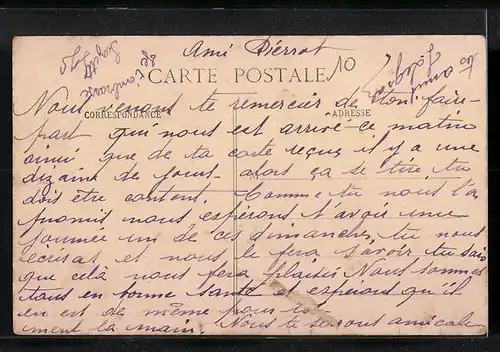 Ami Pierrot
CARTE POSTALE
10
CORRESPONDANCE
ADRESSE
Nous venons te remercier de ton faire-
part qui nous est arrivé ce matin
ainsi que de ta carte reçue il y a une
dizaine de jours - alors ça se tire, tu
dois être content. Comme tu nous l'a
promis nous espérons t'avoir une
journée un de ces dimanches, tu nous
ecriras et nous le fera savoir tu sais
que cela nous fera plaisir Nous sommes
tous en bonne santé et espérons qu'il
en est de même pour toi
Nous te serrons amicale-
ment la main.